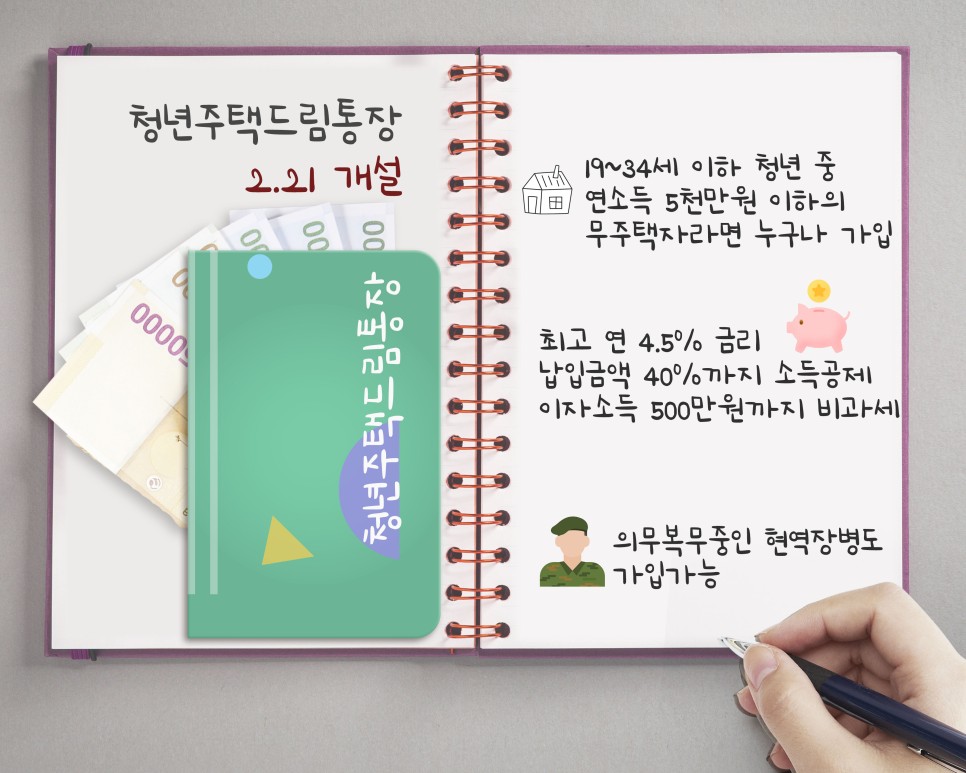 청년주택드림통장
2.21 개설
50000
청년주택드림통장
19~34세 이하 청년 중
연소득 5천만원 이하의
무주택자라면 누구나 가입
최고 연 4.5% 금리
납입금액 40%까지 소득공제
이자소득 500만원까지 비과세
의무복무중인 현역장병도
가입가능